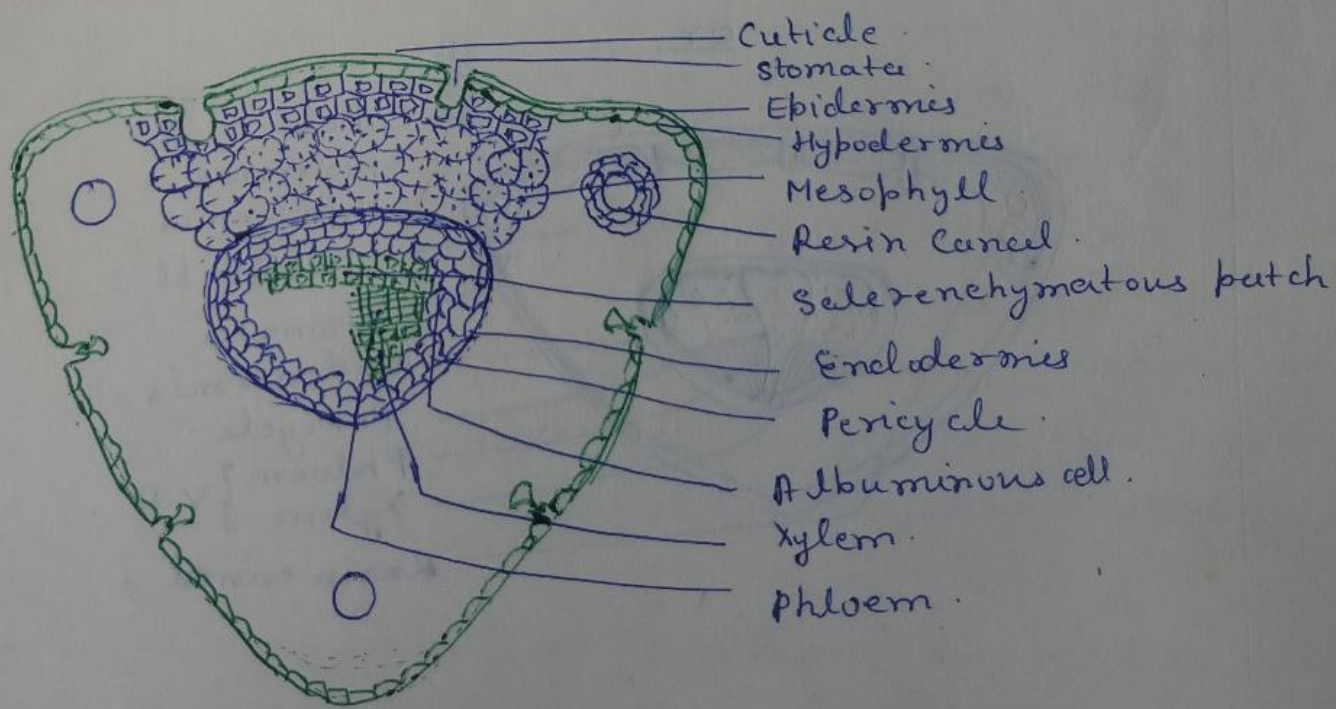 Cuticle.
Stomata.
Epidermis
Hypodermis
Mesophyll
Resin Cancel.
Selerenchymatous patch
Endodermis
Pericycle.
Albuminous cell.
Xylem.
Phloem.